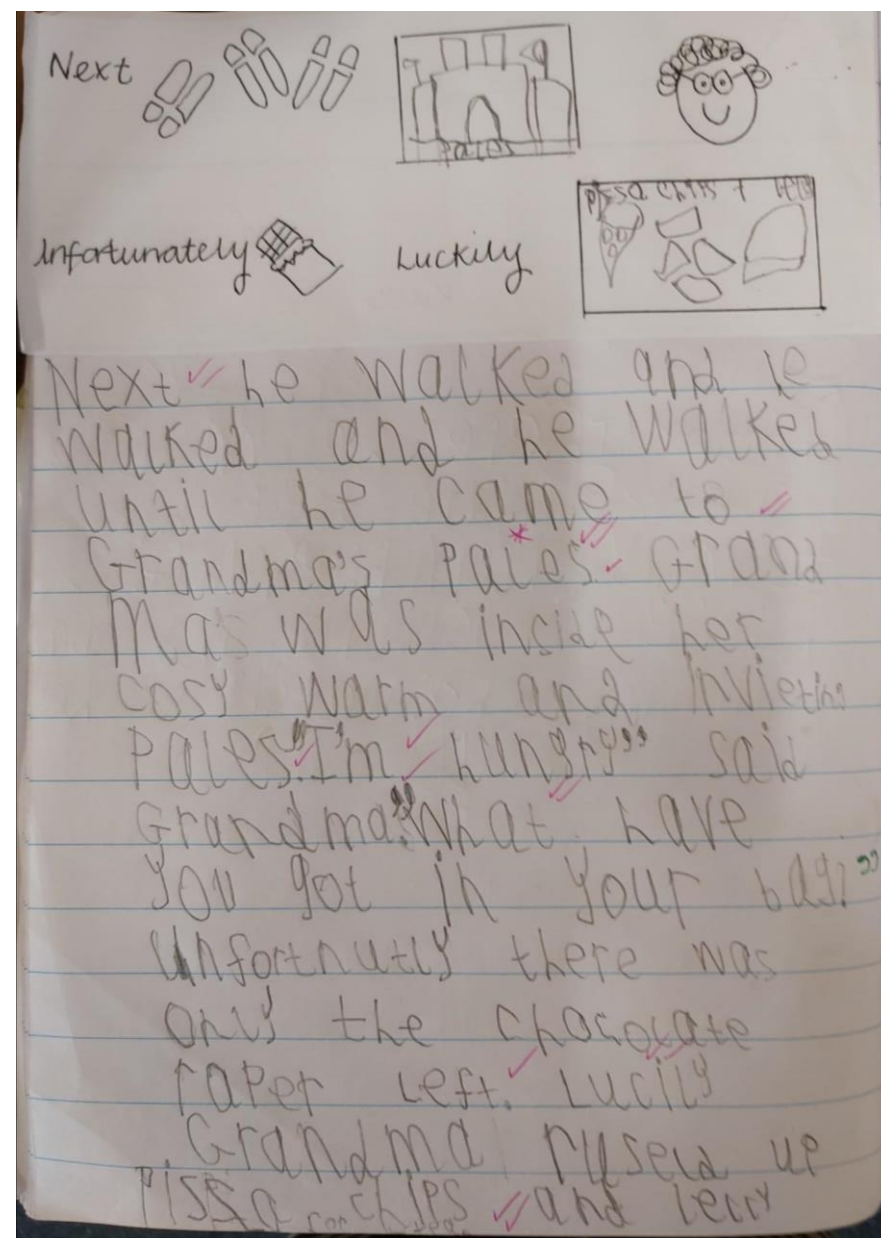 Next
Pales
Unfortunately
Luckily
pissa chips +
Next he walked and he
walked and he walked
until he came to
Grandma's Pales. Grand
Ma's was inside her
cosy warm and invieting
Pales. "I'm hungry" said
Grandma. "What have
you got in your bag?"
Unfortnutly there was
only the chocolate
raper left. Lucily
Grandma ryseld up
Pissa chips and